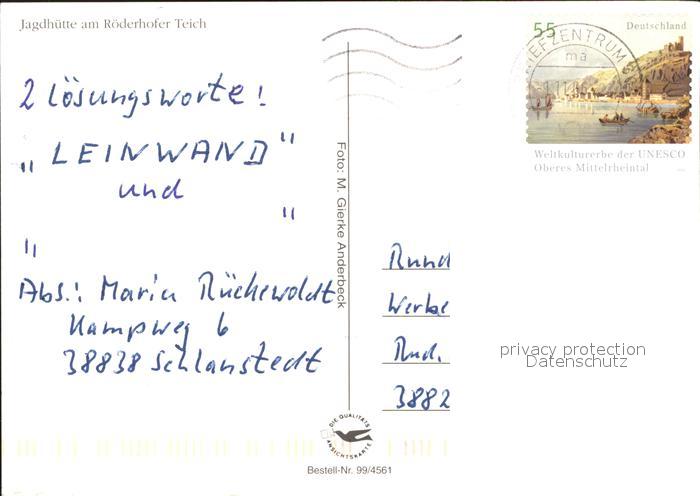 Jagdhütte am Röderhofer Teich
2 Lösungsworte!
„LEINWAND"
und
„ "
Abs.: Maria Rückewoldt
Kampweg 6
38838 Schlanstedt
Foto: M. Gierke Anderbeck
55 Deutschland
BRIEFZENTRUM
ma
Weltkulturerbe der UNESCO
Oberes Mittelrheintal
Rund
Werbe
Rud.
3882
privacy protection
Datenschutz
DIE QUALITÄTS
ANSICHTSKARTE
Bestell-Nr. 99/4561